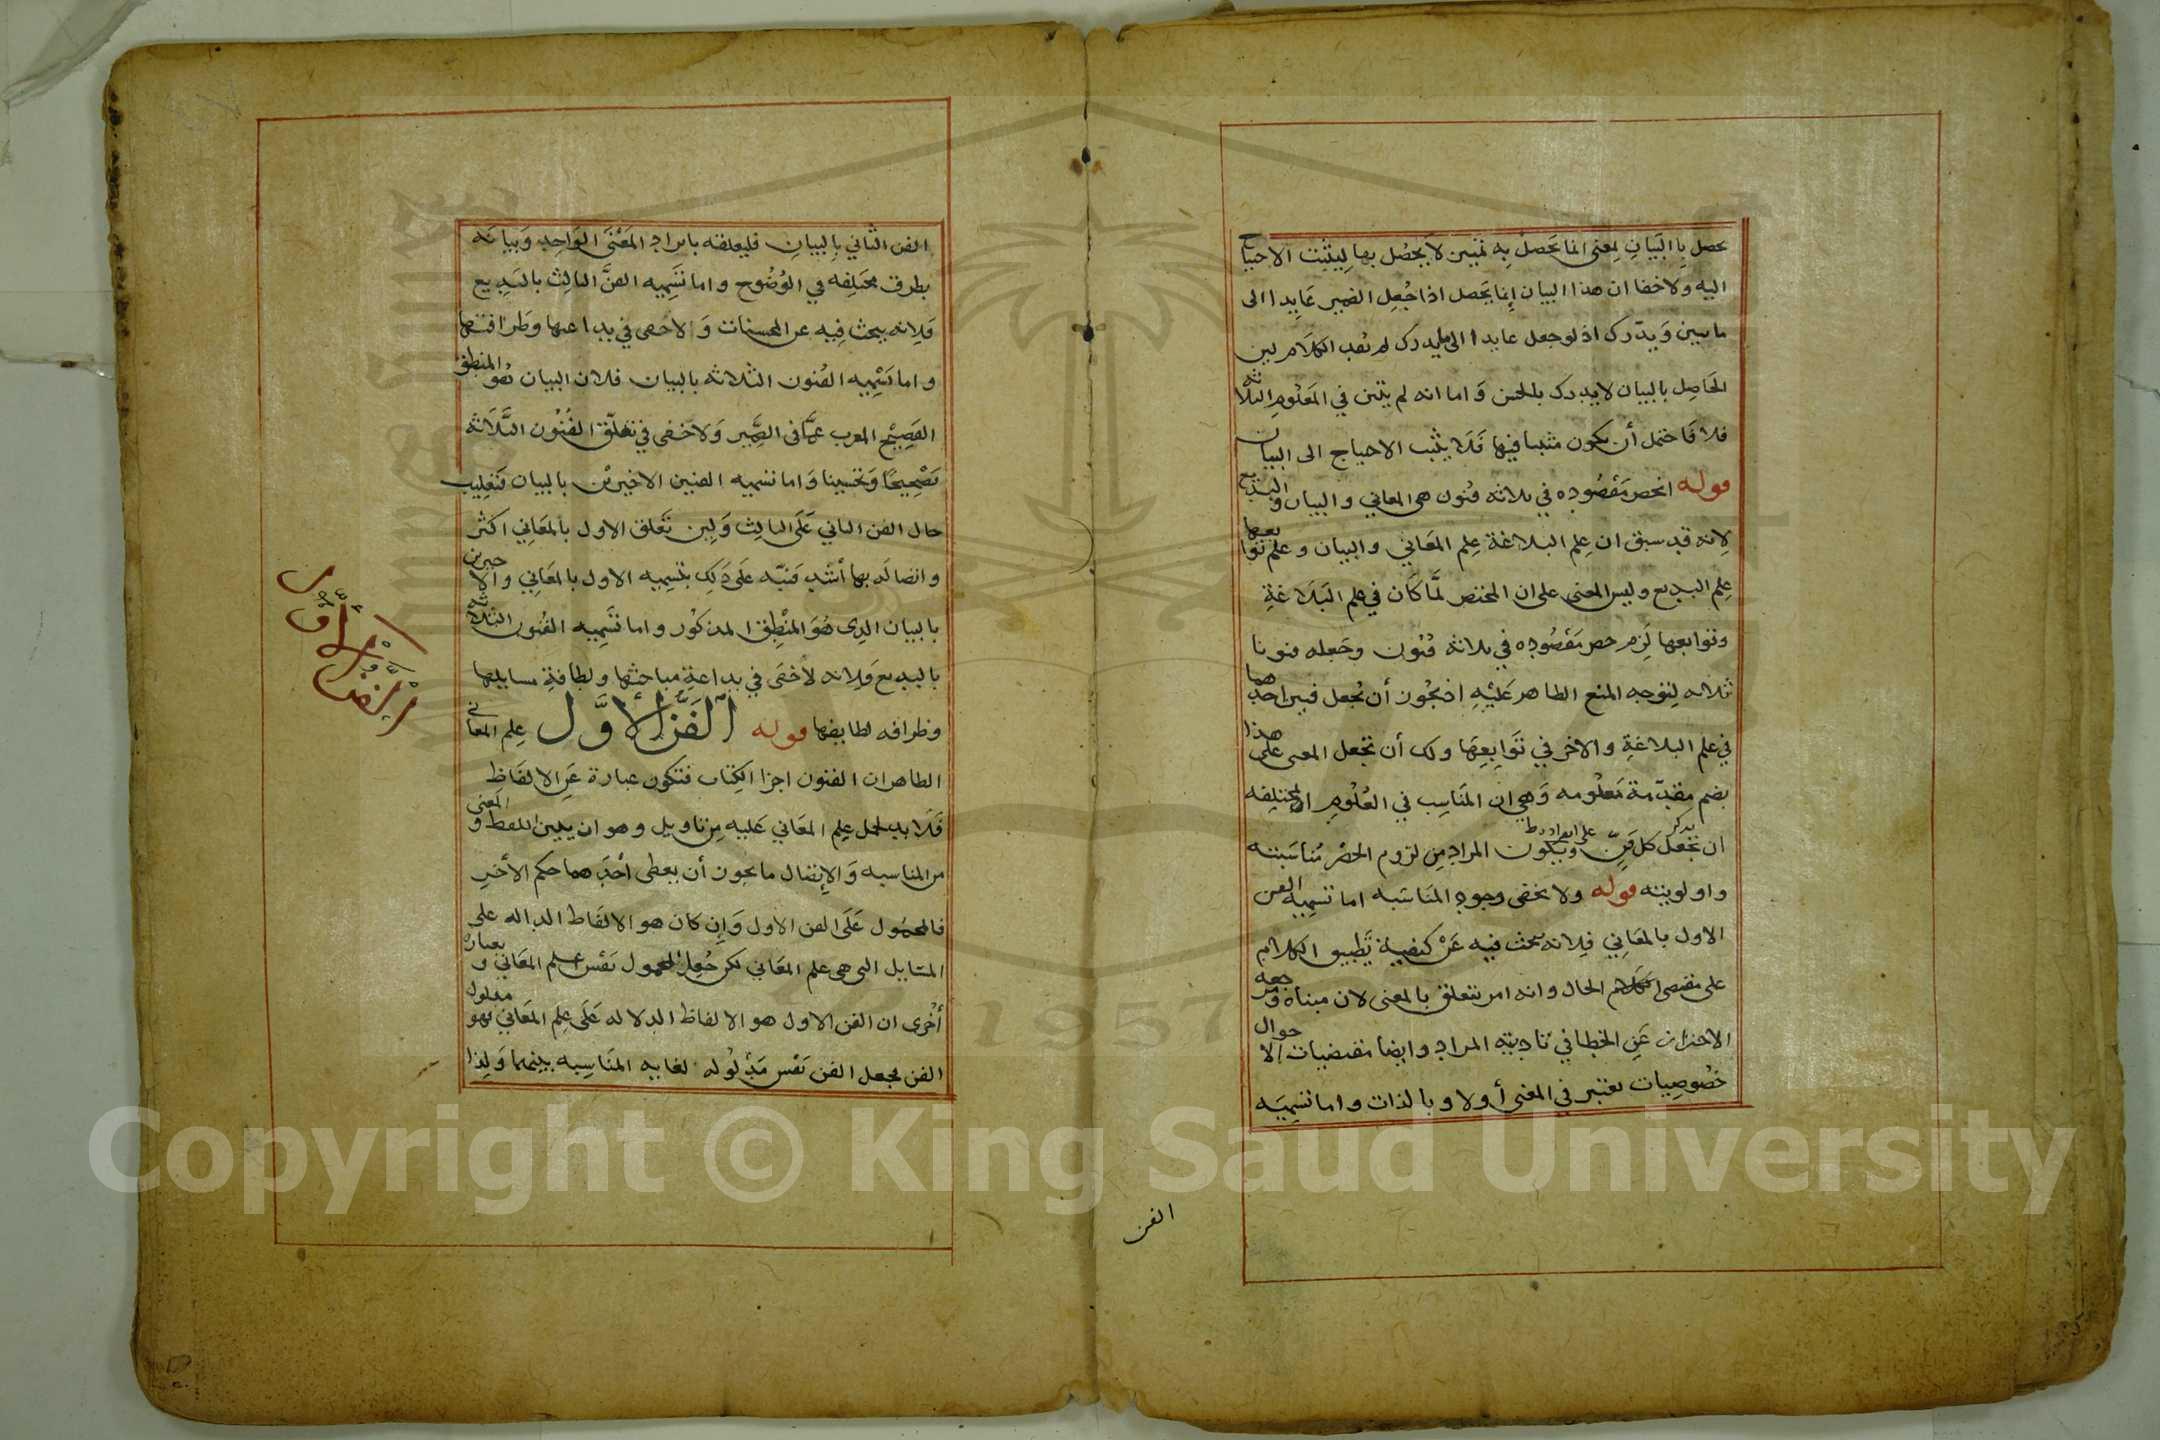 يحصل بالبيان لمعنى انما يحصل به تمييز لا يحصل بها ليثبت الاحتياج
اليه ولا خفا ان هذا البيان إنما يحصل اذا جُعِل الضمير عايدا الى
ما يبين ويدرك اذ لو جعل عايدا الى ما يدرك لم يصب الكلام لان
الحاصل بالبيان لا يدرك بالحس وَاما انه لم يتبين في المعلوم الثلاثه
فلا فاحتمل أن يكون مثبتا فيها فلا يثبت الاحتياج الى البيان
قوله انحصر مَقصُوده في ثلاثة فنون هي المعاني والبيان والبديع
لانه قد سبق ان عِلم البلاغة عِلم المعَاني والبيان وعلم توابعها
عِلم البديع وليس المعنى على ان المختصر لمَّا كَان في علم البَلاغةِ
وتوابعها لَزم حصر مَقصُوده في ثلاثة فُنون وجَعله فنونا
ثلاثه ليتوجه المنع الظاهر عَليْهِ اذ يجُوز أن يُجعل فنين احدهما
في علم البلاغةِ والاخر في تَوابِعِهَا ولك أن تجعل المعنى على هذا
بضم مقدّمة مَعلُومه وَهي ان المناسِب في العُلُوم المختلِفه
ان تجعَل كل فَنّ على انفراد ويكون المراد مِن لزوم الحصْر مُناسَبته
واولويته قوله ولا يخفى وجوه المناسَبه اما تسمِيه الفن
الاول بالمعَانِي فِلانه يبحث فيه عَنْ كيفية تَطبيق الكلام
على مقتضى الحال وانه امر يتعلق بالمعنى لان مبناه ومرجعه
الاحتراز عَن الخطا في تاديته المراد وايضا مقتضيات الاحوال
خصُوصِيات تعتبر في المعنى أولا وبالذات واما تسمِيَه
الفن
الفن الثاني بالبيانِ فليعلقه بايراد المَعْنَى الوَاحِدِ وَبيانه
بطرق مختلِفه في الوُضُوح واما تسَمِيه الفنَّ الثالِث بالبَدِيع
فَلِانه يبحث فِيه عن المحسنات وَلا خفى في بداعتها وطرافتها
واما تَسْمِيه الفُنون الثلاثه بالبيان فلان البيان هُو المنطق
الفصِيْح المعرب عمَّا في الضمِّير وَلا خفى في تعَلّق الفُنُون الثَّلَاثه
تصْحيحًا وَتحسينا وَاما تسميه الفنين الاخيرين بالبيان فتغليب
حال الفن الثاني عَلَى الثالث وَلِان تعَلق الاول بالمعَانِي اكثر
واتصالَه بها أشد فنبّه عَلَى ذلِك بتسمِيه الاول بالمعَانِي والاخيرين
بالبيان الذِى هُوَ المنْطِق المذكوُر واما تَسمِيه الفنُون الثلاثه
بالبديع فَلِانه لا خفَى في بداعةِ مباحثِها ولطافةِ مسايلها
وظرافه لطايفها قوله الفَنُّ الأوَّل عِلم المعاني
الظاهر ان الفنون اجزا الكِتاب فتكون عبارة عَن الالفاظ
فَلا بد لحمل عِلم المعَاني عَليه مِن تاويل وهو ان يبين اللفظ والمعنى
من المناسبه وَالإتصال ما يجوز أن يعطى أحَدَهما حكم الأخر
فالمحمُول عَلَى الفن الاول وَإِن كان هو الالفاظ الداله على
المسَايل التي هي علم المعَاني لكن جُعِل المحمول نفس عِلم المعَاني وبعبارة
أخْرى ان الفن الاول هو الالفاظ الدلاله عَلَى عِلم المعَاني فهو مدلول
الفن فجعل الفن نفْس مَدْلوُله لغايه المنَاسِبه بينهما وَلِذا
الفن الأوّل
Copyright © King Saud University
1957